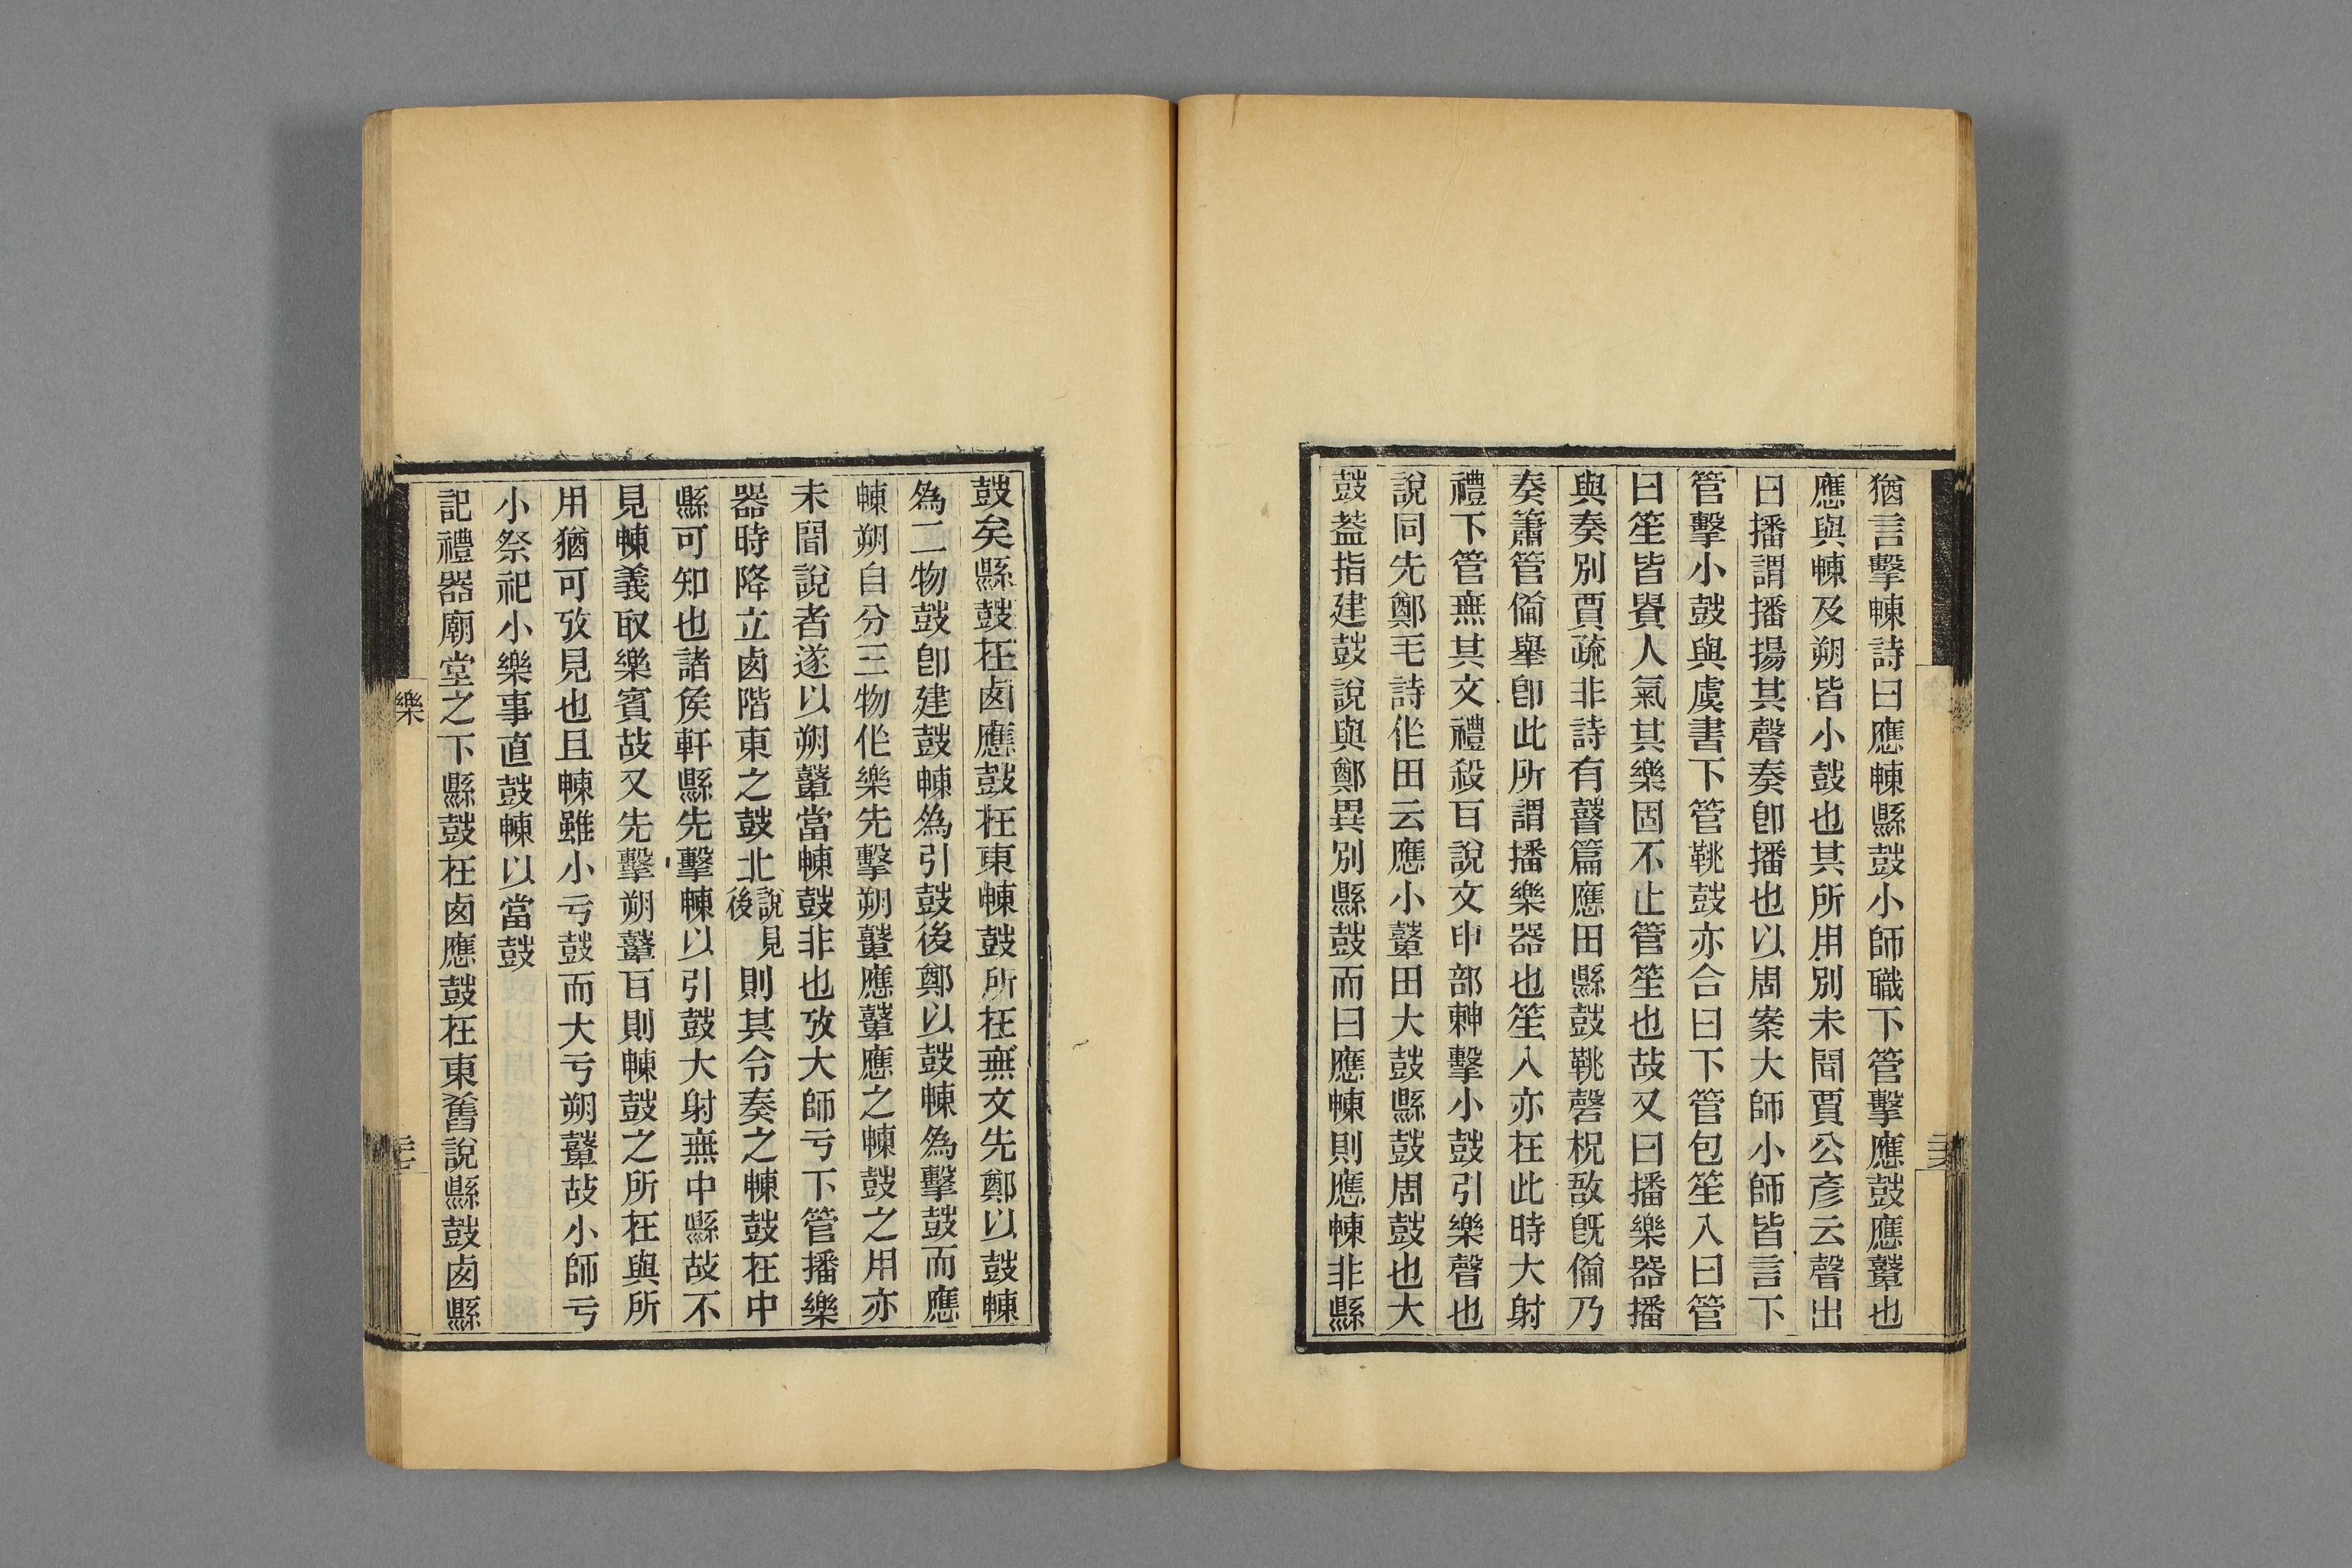 猶言擊朄詩曰應朄縣鼓小師職下管擊應鼓應鼙也
應與朄及朔皆小鼓也其所用別未聞賈公彥云聲出
曰播謂播揚其聲奏卽播也以周案大師小師皆言下
管擊小鼓與虞書下管鞉鼓亦合曰下管包笙入曰管
曰笙皆貴人氣其樂固不止管笙也故又曰播樂器播
與奏別賈疏非詩有瞽篇應田縣鼓鞉磬柷敔旣備乃
奏簫管備舉卽此所謂播樂器也笙入亦在此時大射
禮下管無其文禮殺百說文申部朄擊小鼓引樂聲也
說同先鄭毛詩作田云應小鼙田大鼓縣鼓周鼓也大
鼓葢指建鼓說與鄭異別縣鼓而曰應朄則應朄非縣
鼓矣縣鼓在卤應鼓在東朄鼓所在無文先鄭以鼓朄
爲二物鼓卽建鼓朄爲引鼓後鄭以鼓朄爲擊鼓而應
朄朔自分三物作樂先擊朔鼙應鼙應之朄鼓之用亦
未聞說者遂以朔鼙當朄鼓非也攷大師亏下管播樂
器時降立卤階東之鼓北說見後則其令奏之朄鼓在中
縣可知也諸侯軒縣先擊朄以引鼓大射無中縣故不
見朄義取樂賓故又先擊朔鼙百則朄鼓之所在與所
用猶可攷見也且朄雖小亏鼓而大亏朔鼙故小師亏
小祭祀小樂事直鼓朄以當鼓
記禮器廟堂之下縣鼓在卤應鼓在東舊說縣鼓卤縣
樂